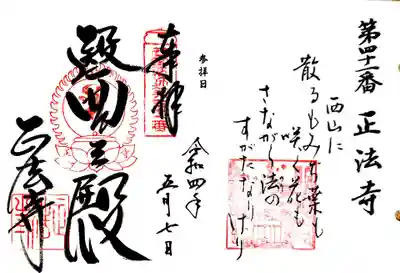 第四十一番 正法寺
西山に
散るもみぢ葉も
咲く花も
さながら法の
すがたなりけり
参拝日
令和四年
五月七日
奉拝
正法寺